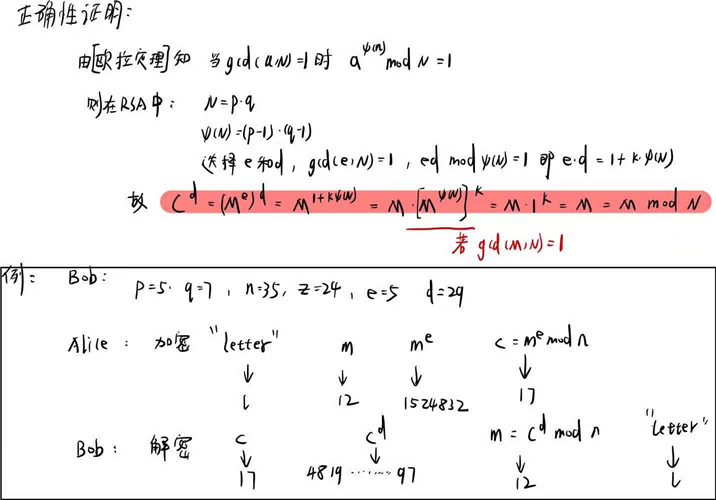 正确性证明：
由[欧拉定理]知 当gcd(a,N)=1时 a^ψ(n) mod N=1
则在RSA中： N=p·q
ψ(N)=(p-1)·(q-1)
选择e和d, gcd(e,N)=1, ed mod ψ(N)=1 即 e·d=1+k·ψ(N)
故 C^d=(M^e)^d=M^1+kψ(N)=M·[M^ψ(N)]^k=M·1^k=M=M mod N
若 gcd(M,N)=1
例： Bob： P=5. q=7, n=35, z=24, e=5 d=29
Alice： 加密 "letter" m m^e c=m^e mod n
↓ ↓ ↓ ↓
l 12 1524832 17
Bob： 解密 c c^d m=c^d mod n "letter"
↓ ↓ ↓ ↓
17 4819……97 12 l